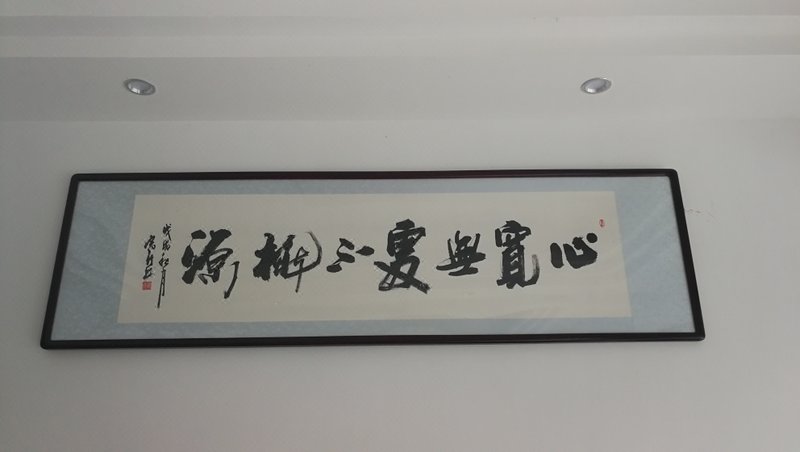 心寬無處不桃源
戊戌
月